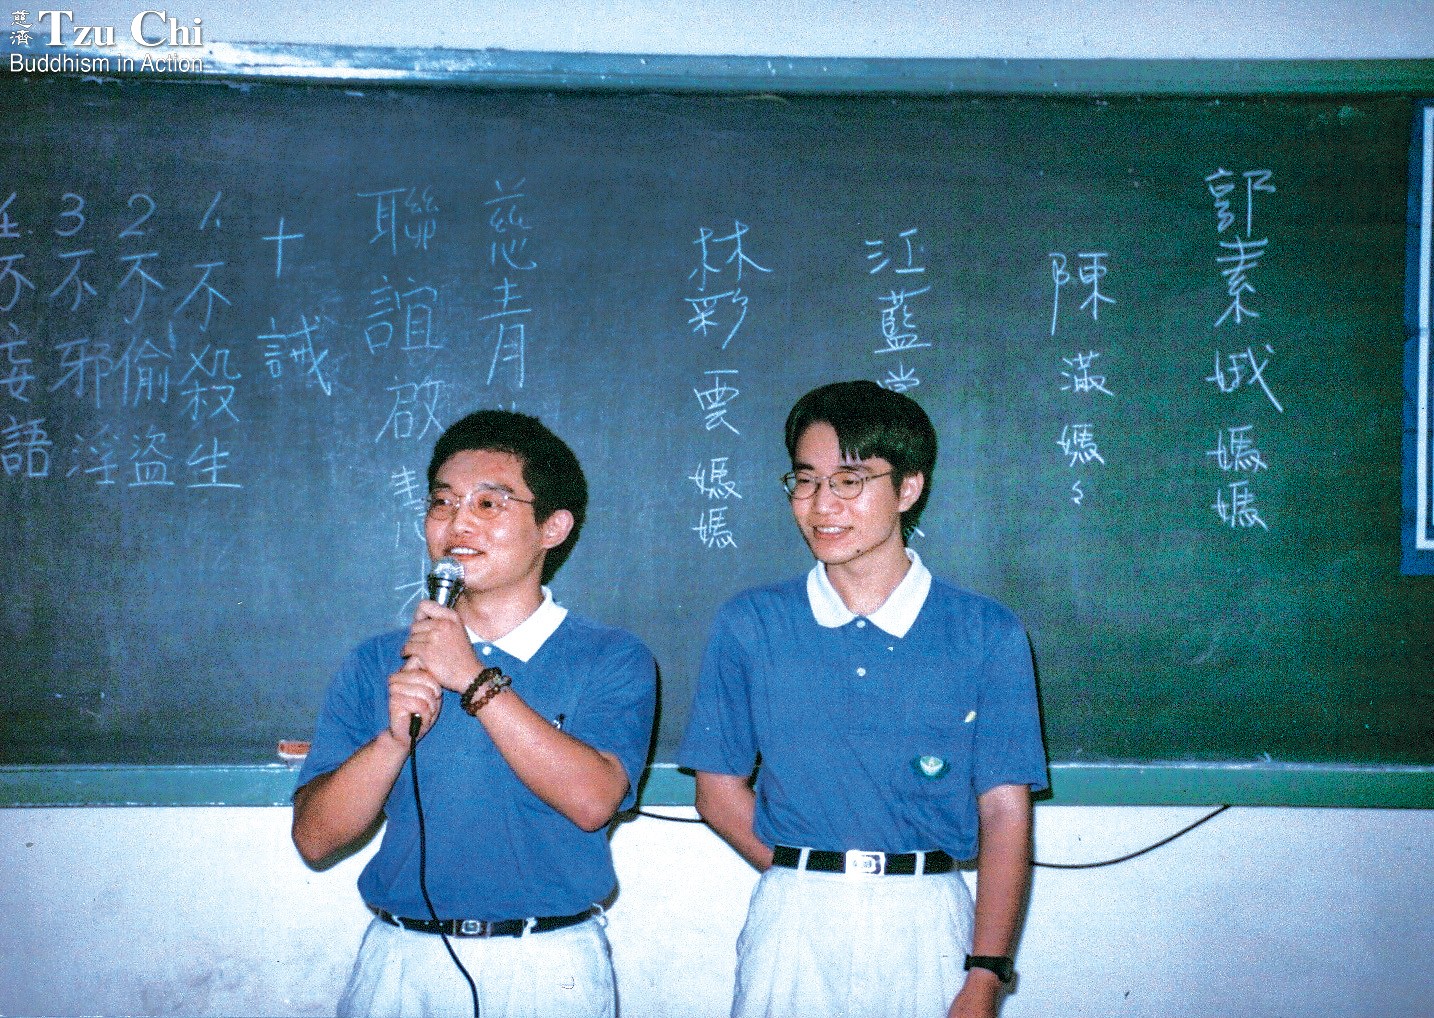 慈濟 Tzu Chi
Buddhism in Action
郭素娥媽媽
陳滿媽々
江藍
林彩雲媽媽
慈青
聯誼啟
十誡
1.不殺生
2不偷盜
3不邪淫
4.不妄語